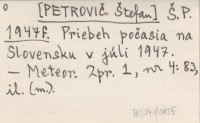 [PETROVIČ Štefan] Š.P.
1947. Priebeh počasia na
Slovensku v júli 1947.
– Meteor. Zpr. 1, nr 4: 83,
il. (m.).